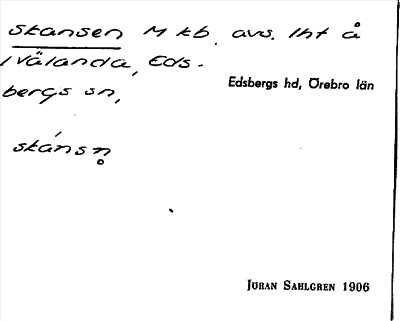 skansen M kb. avs. lht å
Välanda, Eds-
bergs sn,
Edsbergs hd, Örebro län
skánsn̥
JÖRAN SAHLGREN 1906